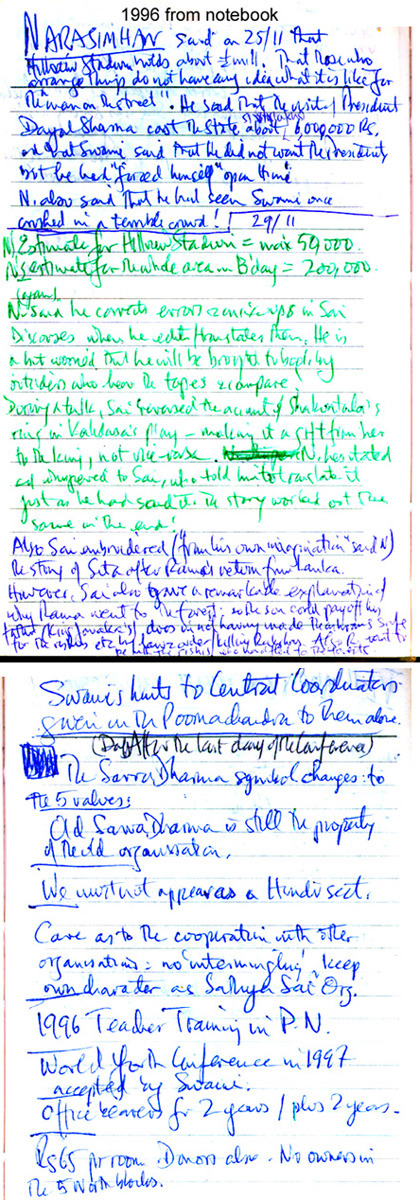 1996 from notebook
NARASIMHAN said on 25/11 that
Hillview Stadium holds about ½ mill. That those who
arrange things do not have any idea what it is like for
"the man on the street". He said that the visit of President
Dayal Sharma cost the State about 6,000,000 Rs.
and that Swami said that he did not want the Presidents
but he had "forced himself" upon him!
N. also said that he had seen Swami once
crushed in a terrible crowd! 29/11
N. Estimate for Hillview Stadium = max 50,000.
N's estimate for the whole area on B'day = 200,000.
N. said he corrects errors & mix-ups in Sai
Discourses when he edits/translates them. He is
a bit worried that he will be brought to book by
outsiders who hear the tapes & compare.
During a talk, Sai reversed the account of Shakuntala's
ring in Kalidasa's play – making it a gift from her
to the king, not vice-versa. N. hesitated
and whispered to Sai, who told him to translate it
just as he had said it. The story worked out the
same in the end!
Also Sai embroidered ("from his own imagination" said N)
the story of Sita after Rama's return from Lanka.
However, Sai also gave a remarkable explanation of
why Rama went to the forest: so the son could pay off his
Swami's hints to Central Coordinators
given in the Poornachandra to them alone.
(Day After the last day of the Conference)
The Sarva Dharma symbol changes: to
the 5 values:
Old Sarva Dharma is still the property
of the old organisation.
We must not appear as a Hindu sect.
Care as to the cooperation with other
organisations: no 'intermingling', keep
own character as Sathya Sai Org.
1996 Teacher Training in P.N.
World Youth Conference in 1997
accepted by Swami.
Office bearers for 2 years / plus 2 years.
Rs65 per room. Donors also. No owners in
the 5 North blocks.